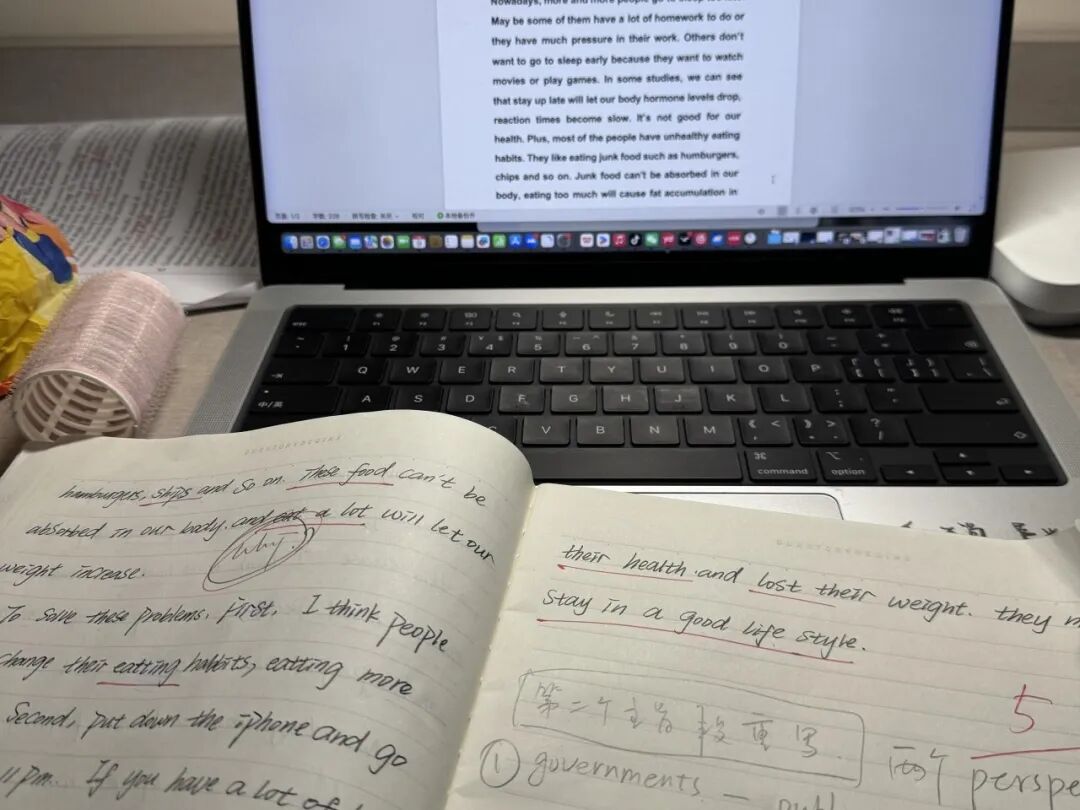 Nowadays, more and more people go to sleep too late.
May be some of them have a lot of homework to do or
they have much pressure in their work. Others don't
want to go to sleep early because they want to watch
movies or play games. In some studies, we can see
that stay up late will let our body hormone levels drop,
reaction times become slow. It's not good for our
health. Plus, most of the people have unhealthy eating
habits. They like eating junk food such as humburgers,
chips and so on. Junk food can't be absorbed in our
body, eating too much will cause fat accumulation in
esc
1 2 3 4 5 6 7 8 9 0
Q W E R T Y U I O P
中/英 A S D F G H J K L
C V B N M
command option
hamburgers, ships and so on. These food can't be
absorbed in our body. and eat a lot will let our
why?
weight increase.
To solve these problems. First, I think people
change their eatting habbits, eatting more
Second, put down the iphone and go
11 pm. If you have a lot of
their health. and lost their weight. they
stay in a good life style.
第二个主旨段重写
5
① governments — publ
两个 perspe